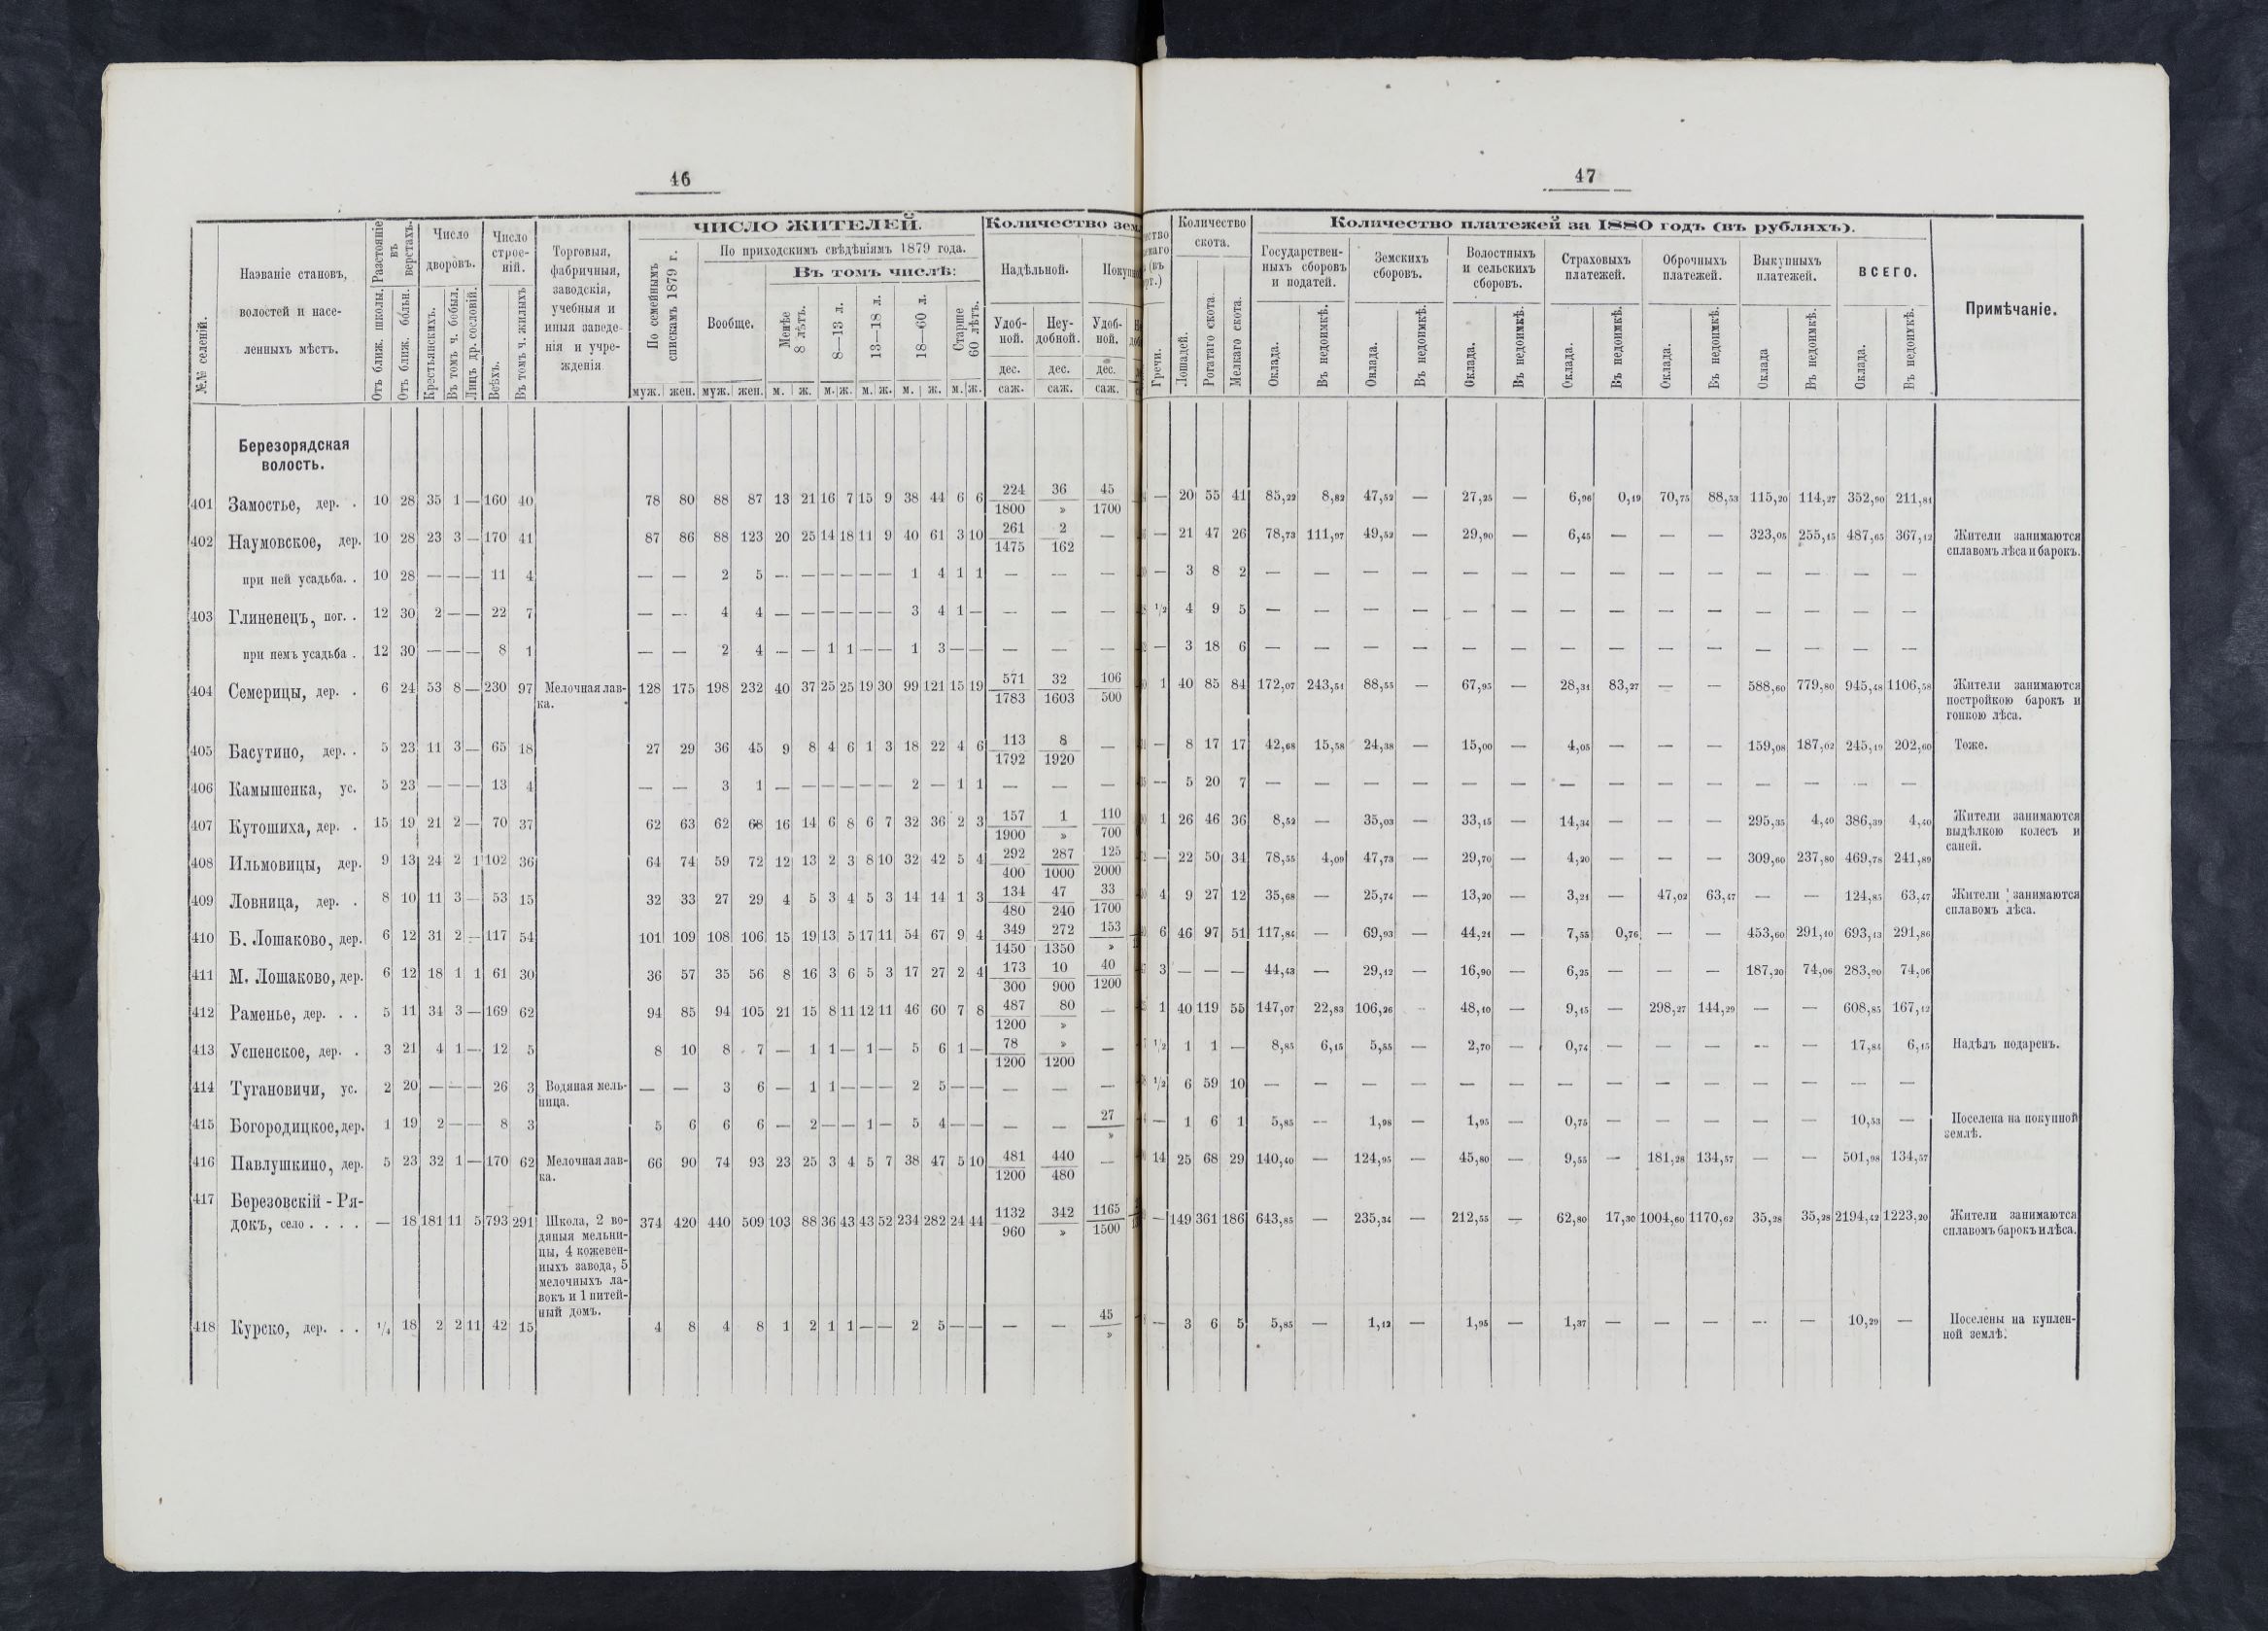 46
№№ селеній.
Названіе становъ, волостей и населенныхъ мѣстъ.
Разстояніе въ верстахъ.
Отъ ближ. школы.
Отъ ближ. больн.
Число дворовъ.
Крестьянскихъ.
Въ томъ ч. бобыл.
Лицъ др. сословій.
Число строеній.
Всѣхъ.
Въ томъ ч. жилыхъ
Торговыя, фабричныя, заводскія, учебныя и иныя заведенія и учрежденія
ЧИСЛО ЖИТЕЛЕЙ.
По семейнымъ спискамъ 1879 г.
По приходскимъ свѣдѣніямъ 1879 года.
Вообще.
Въ томъ числѣ:
Менѣе 8 лѣтъ.
8—13 л.
13—18 л.
18—60 л.
Старше 60 лѣтъ.
муж. жен. муж. жен. м. ж. м. ж. м. ж. м. ж. м. ж.
Количество зем
Надѣльной.
Удобной.
Неудобной.
Удобной.
дес. дес. дес.
саж. саж. саж.
Березорядская
волость.
401 Замостье, дер. . 10 28 35 1 — 160 40 78 80 88 87 13 21 16 7 15 9 38 44 6 6 224/1800 36/» 45/1700
402 Наумовское, дер. 10 28 23 3 — 170 41 87 86 88 123 20 25 14 18 11 9 40 61 3 10 261/1475 2/162 —
при ней усадьба. . 10 28 — — — 11 4 — — 2 5 — — — — — — 1 4 1 1 — — —
403 Глиненецъ, пог. . 12 30 2 — — 22 7 — — 4 4 — — — — — — 3 4 1 — — — —
при немъ усадьба . 12 30 — — — 8 1 — — 2 4 — — 1 1 — — 1 3 — — — — —
404 Семерицы, дер. . 6 24 53 8 — 230 97 Мелочная лав- 128 175 198 232 40 37 25 25 19 30 99 121 15 19 571/1783 32/1603 106/500
ка.
405 Басутино, дер. . 5 23 11 3 — 65 18 27 29 36 45 9 8 4 6 1 3 18 22 4 6 113/1792 8/1920 —
406 Камышенка, ус. 5 23 — — — 13 4 — — 3 1 — — — — — — 2 — 1 1 — — —
407 Кутошиха, дер. . 15 19 21 2 — 70 37 62 63 62 68 16 14 6 8 6 7 32 36 2 3 157/1900 1/» 110/700
408 Ильмовицы, дер. 9 13 24 2 1 102 36 64 74 59 72 12 13 2 3 8 10 32 42 5 4 292/400 287/1000 125/2000
409 Ловница, дер. . 8 10 11 3 — 53 15 32 33 27 29 4 5 3 4 5 3 14 14 1 3 134/480 47/240 33/1700
410 Б. Лошаково, дер. 6 12 31 2 — 117 54 101 109 108 106 15 19 13 5 17 11 54 67 9 4 349/1450 272/1350 153/»
411 М. Лошаково, дер. 6 12 18 1 1 61 30 36 57 35 56 8 16 3 6 5 3 17 27 2 4 173/300 10/900 40/1200
412 Раменье, дер. . . 5 11 34 3 — 169 62 94 85 94 105 21 15 8 11 12 11 46 60 7 8 487/1200 80/» —
413 Успенское, дер. . 3 21 4 1 — 12 5 8 10 8 7 — 1 1 — 1 — 5 6 1 — 78/1200 »/1200 —
414 Тугановичи, ус. 2 20 — — — 26 3 Водяная мель- — — 3 6 — 1 1 — — — 2 5 — — — — —
ница.
415 Богородицкое, дер. 1 19 2 — — 8 3 5 6 6 6 — 2 — — 1 — 5 4 — — — — 27/»
416 Павлушкино, дер. 5 23 32 1 — 170 62 Мелочная лав- 66 90 74 93 23 25 3 4 5 7 38 47 5 10 481/1200 440/480 —
ка.
417 Березовскій - Ря-
докъ, село . . . . — 18 181 11 5 793 291 Школа, 2 во- 374 420 440 509 103 88 36 43 43 52 234 282 24 44 1132/960 342/» 1165/1500
дяныя мельни-
цы, 4 кожевен-
ныхъ завода, 5
мелочныхъ ла-
вокъ и 1 питей-
ный домъ.
418 Курско, дер. . . 1/4 18 2 2 11 42 15 4 8 4 8 1 2 1 1 — — 2 5 — — — — 45/»
47
Гречи.
Количество скота.
Лошадей.
Рогатаго скота.
Мелкаго скота.
Количество платежей за 1880 годъ (въ рубляхъ).
Государственныхъ сборовъ и податей.
Земскихъ сборовъ.
Волостныхъ и сельскихъ сборовъ.
Страховыхъ платежей.
Оброчныхъ платежей.
Выкупныхъ платежей.
ВСЕГО.
Оклада. Въ недоимкѣ. Оклада. Въ недоимкѣ. Оклада. Въ недоимкѣ. Оклада. Въ недоимкѣ. Оклада. Въ недоимкѣ. Оклада Въ недоимкѣ. Оклада. Въ недоимкѣ.
Примѣчаніе.
— 20 55 41 85,22 8,82 47,52 — 27,25 — 6,96 0,19 70,75 88,53 115,20 114,27 352,90 211,81
— 21 47 26 78,73 111,97 49,52 — 29,90 — 6,45 — — — 323,05 255,15 487,65 367,12 Жители занимаются
сплавомъ лѣса и барокъ.
— 3 8 2 — — — — — — — — — — — — — —
1/2 4 9 5 — — — — — — — — — — — — — —
— 3 18 6 — — — — — — — — — — — — — —
1 40 85 84 172,07 243,51 88,55 — 67,95 — 28,31 83,27 — — 588,60 779,80 945,48 1106,58 Жители занимаются
постройкою барокъ и
гонкою лѣса.
— 8 17 17 42,68 15,58 24,38 — 15,00 — 4,05 — — — 159,08 187,02 245,19 202,60 Тоже.
— 5 20 7 — — — — — — — — — — — — — —
1 26 46 36 8,52 — 35,03 — 33,15 — 14,34 — — — 295,35 4,40 386,39 4,40 Жители занимаются
выдѣлкою колесъ и
саней.
— 22 50 34 78,55 4,09 47,73 — 29,70 — 4,20 — — — 309,60 237,80 469,78 241,89
4 9 27 12 35,68 — 25,74 — 13,20 — 3,21 — 47,02 63,47 — — 124,85 63,47 Жители занимаются
сплавомъ лѣса.
6 46 97 51 117,84 — 69,93 — 44,21 — 7,55 0,76 — — 453,60 291,10 693,13 291,86
3 — — — 44,43 — 29,12 — 16,90 — 6,25 — — — 187,20 74,06 283,90 74,06
1 40 119 55 147,07 22,83 106,26 — 48,10 — 9,15 — 298,27 144,29 — — 608,85 167,12
1/2 1 1 — 8,85 6,15 5,55 — 2,70 — 0,74 — — — — — 17,84 6,15 Надѣлъ подаренъ.
1/2 6 59 10 — — — — — — — — — — — — — —
— 1 6 1 5,85 — 1,98 — 1,95 — 0,75 — — — — — 10,53 — Поселена на покупной
землѣ.
14 25 68 29 140,40 — 124,95 — 45,80 — 9,55 — 181,28 134,57 — — 501,98 134,57
— 149 361 186 643,85 — 235,34 — 212,55 — 62,80 17,30 1004,60 1170,62 35,28 35,28 2194,42 1223,20 Жители занимаются
сплавомъ барокъ и лѣса.
— 3 6 5 5,85 — 1,12 — 1,95 — 1,37 — — — — — 10,29 — Поселены на куплен-
ной землѣ.